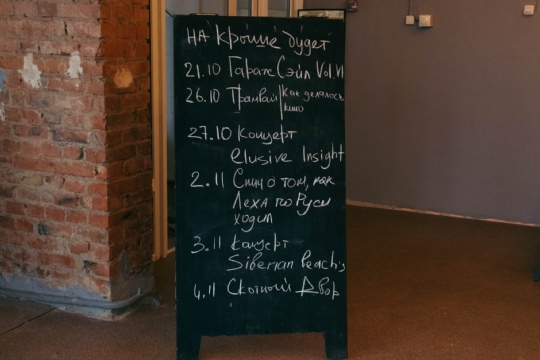 НА Крыше будет
21.10 Гараж Сэйл Vol. VI
26.10 Трамвай | как делалось
кино
27.10 Концерт
elusive Insight
2.11 Спич о том, как
Лёха по Руси
ходил
3.11 Концерт
Siberian Beach's
4.11 Скотный Двор